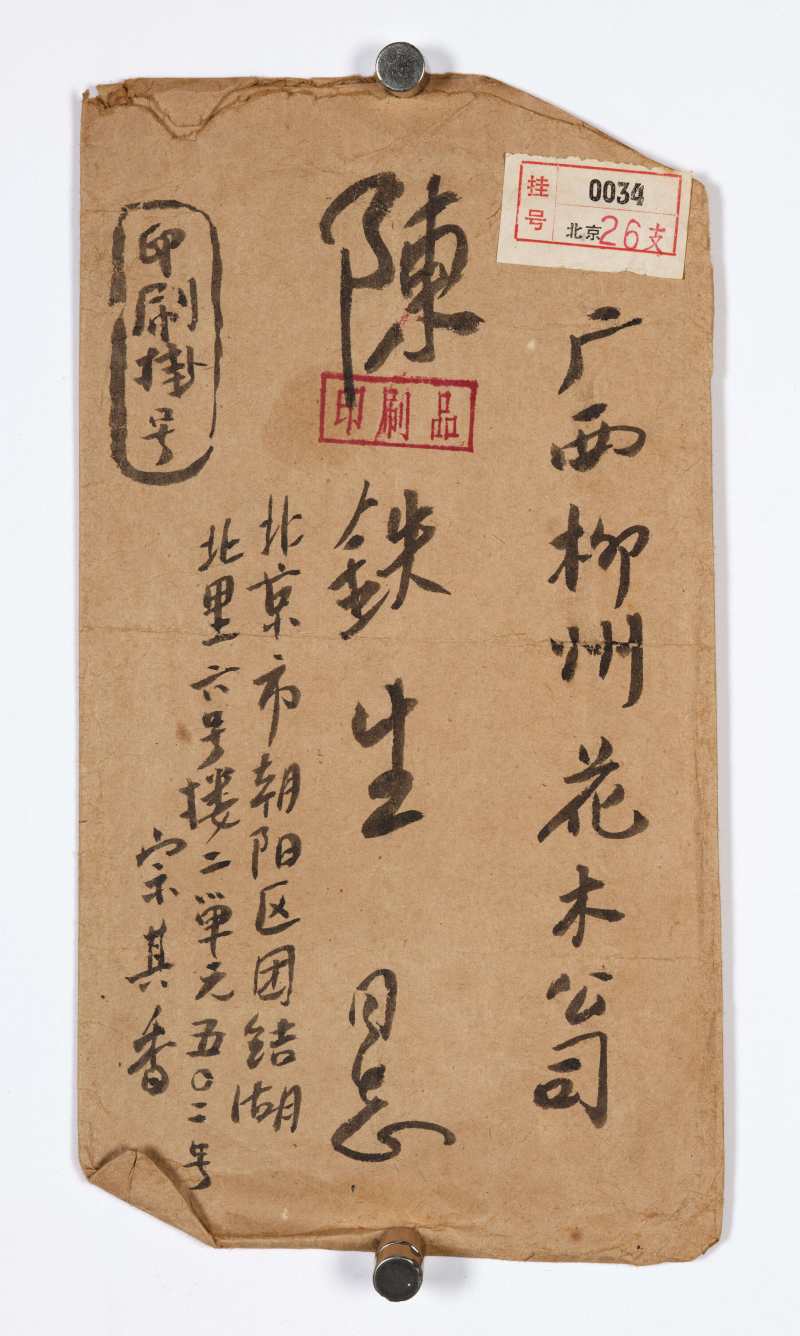 挂号 0034
北京26支
广西柳州花木公司
陳鉄生同志
印刷品
北京市朝阳区团结湖
北里六号楼二單元五〇二号
宗其香
印刷掛号